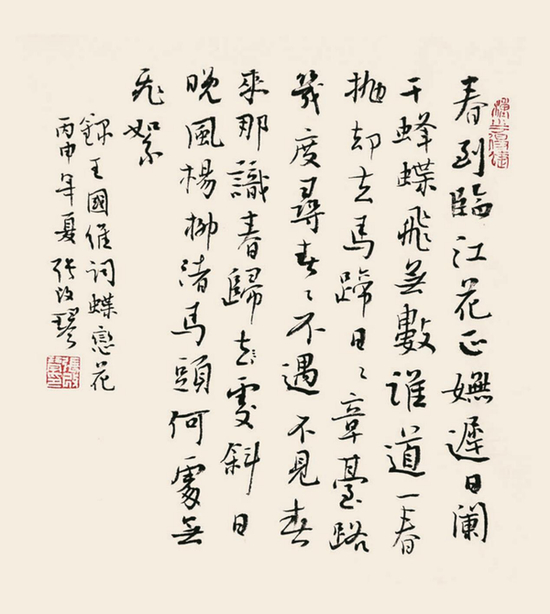 春到臨江花正嫵遲日闌
干蜂蝶飛無數誰道一春
拋却去馬蹄日々章臺路
幾度尋春々不遇不見春
來那識春歸去處斜日
晚風楊柳渚馬頭何處無
飛絮
錄王國維詞蝶戀花
丙申年夏張改琴